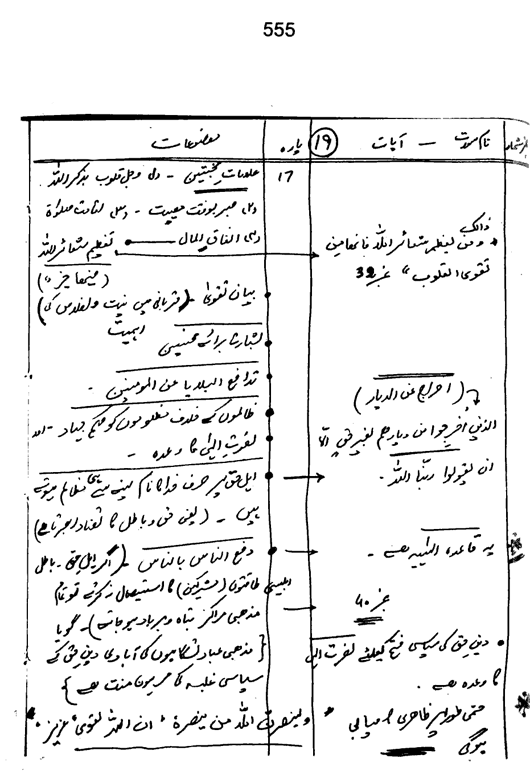 555
نمبر شمار نام سورت – آیات ⑲ پارہ موضوعات
17 علامات مخبتین – دل وجل قلوب بذکر اللہ
صبر بوقت مصیبت –
انفاق المال – تعظیم شعائر اللہ
ذالک
ومن یعظم شعائر اللہ فانھا من
تقوی القلوب نمبر 32
بیان تقویٰ – (قربانی میں نیت و اخلاص کی
اہمیت
بشارت برائے محسنین
تدافع البلایا عن المومنین –
(اخراج عن الدیار)
ظالموں کے خلاف مظلوموں کو حکم جہاد – اور
نصرت الٰہی کا وعدہ –
الذین اخرجوا من دیارھم بغیر حق الا
ان یقولوا ربنا اللہ –
اہل حق پر صرف خدا کا نام لینے سے ہی مظالم ہوتے
ہیں – (یعنی حق و باطل کا تضاد
یہ قاعدہ الٰہیہ ہے –
دفع الناس بالناس – (اگر اہل حق – باطل
ابلیسی طاقتوں (مشرکین) کا استیصال نہ کرتے تو تمام
نمبر 40
مذہبی مراکز تباہ و برباد ہو جاتے) – گویا
{مذہبی عبادتگاہوں کی آبادی دین حق کے
سیاسی غلبہ کا مرہون منت ہے}
دین حق کی سیاسی فتح کیلئے نصرت الٰہی
کا وعدہ ہے –
ولینصرن اللہ من ینصرہ ان اللہ لقوی عزیز
حتمی طور پر ظاہری کامیابی
ہوگی